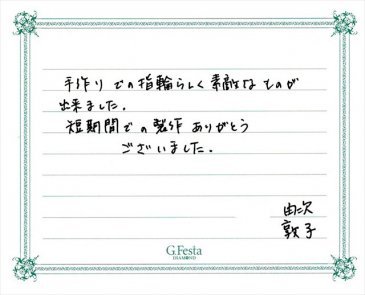 手作りでの指輪らしく素敵なものが
出来ました。
短期間での製作ありがとう
ございました。
由次
敦子
G.Festa
DIAMOND